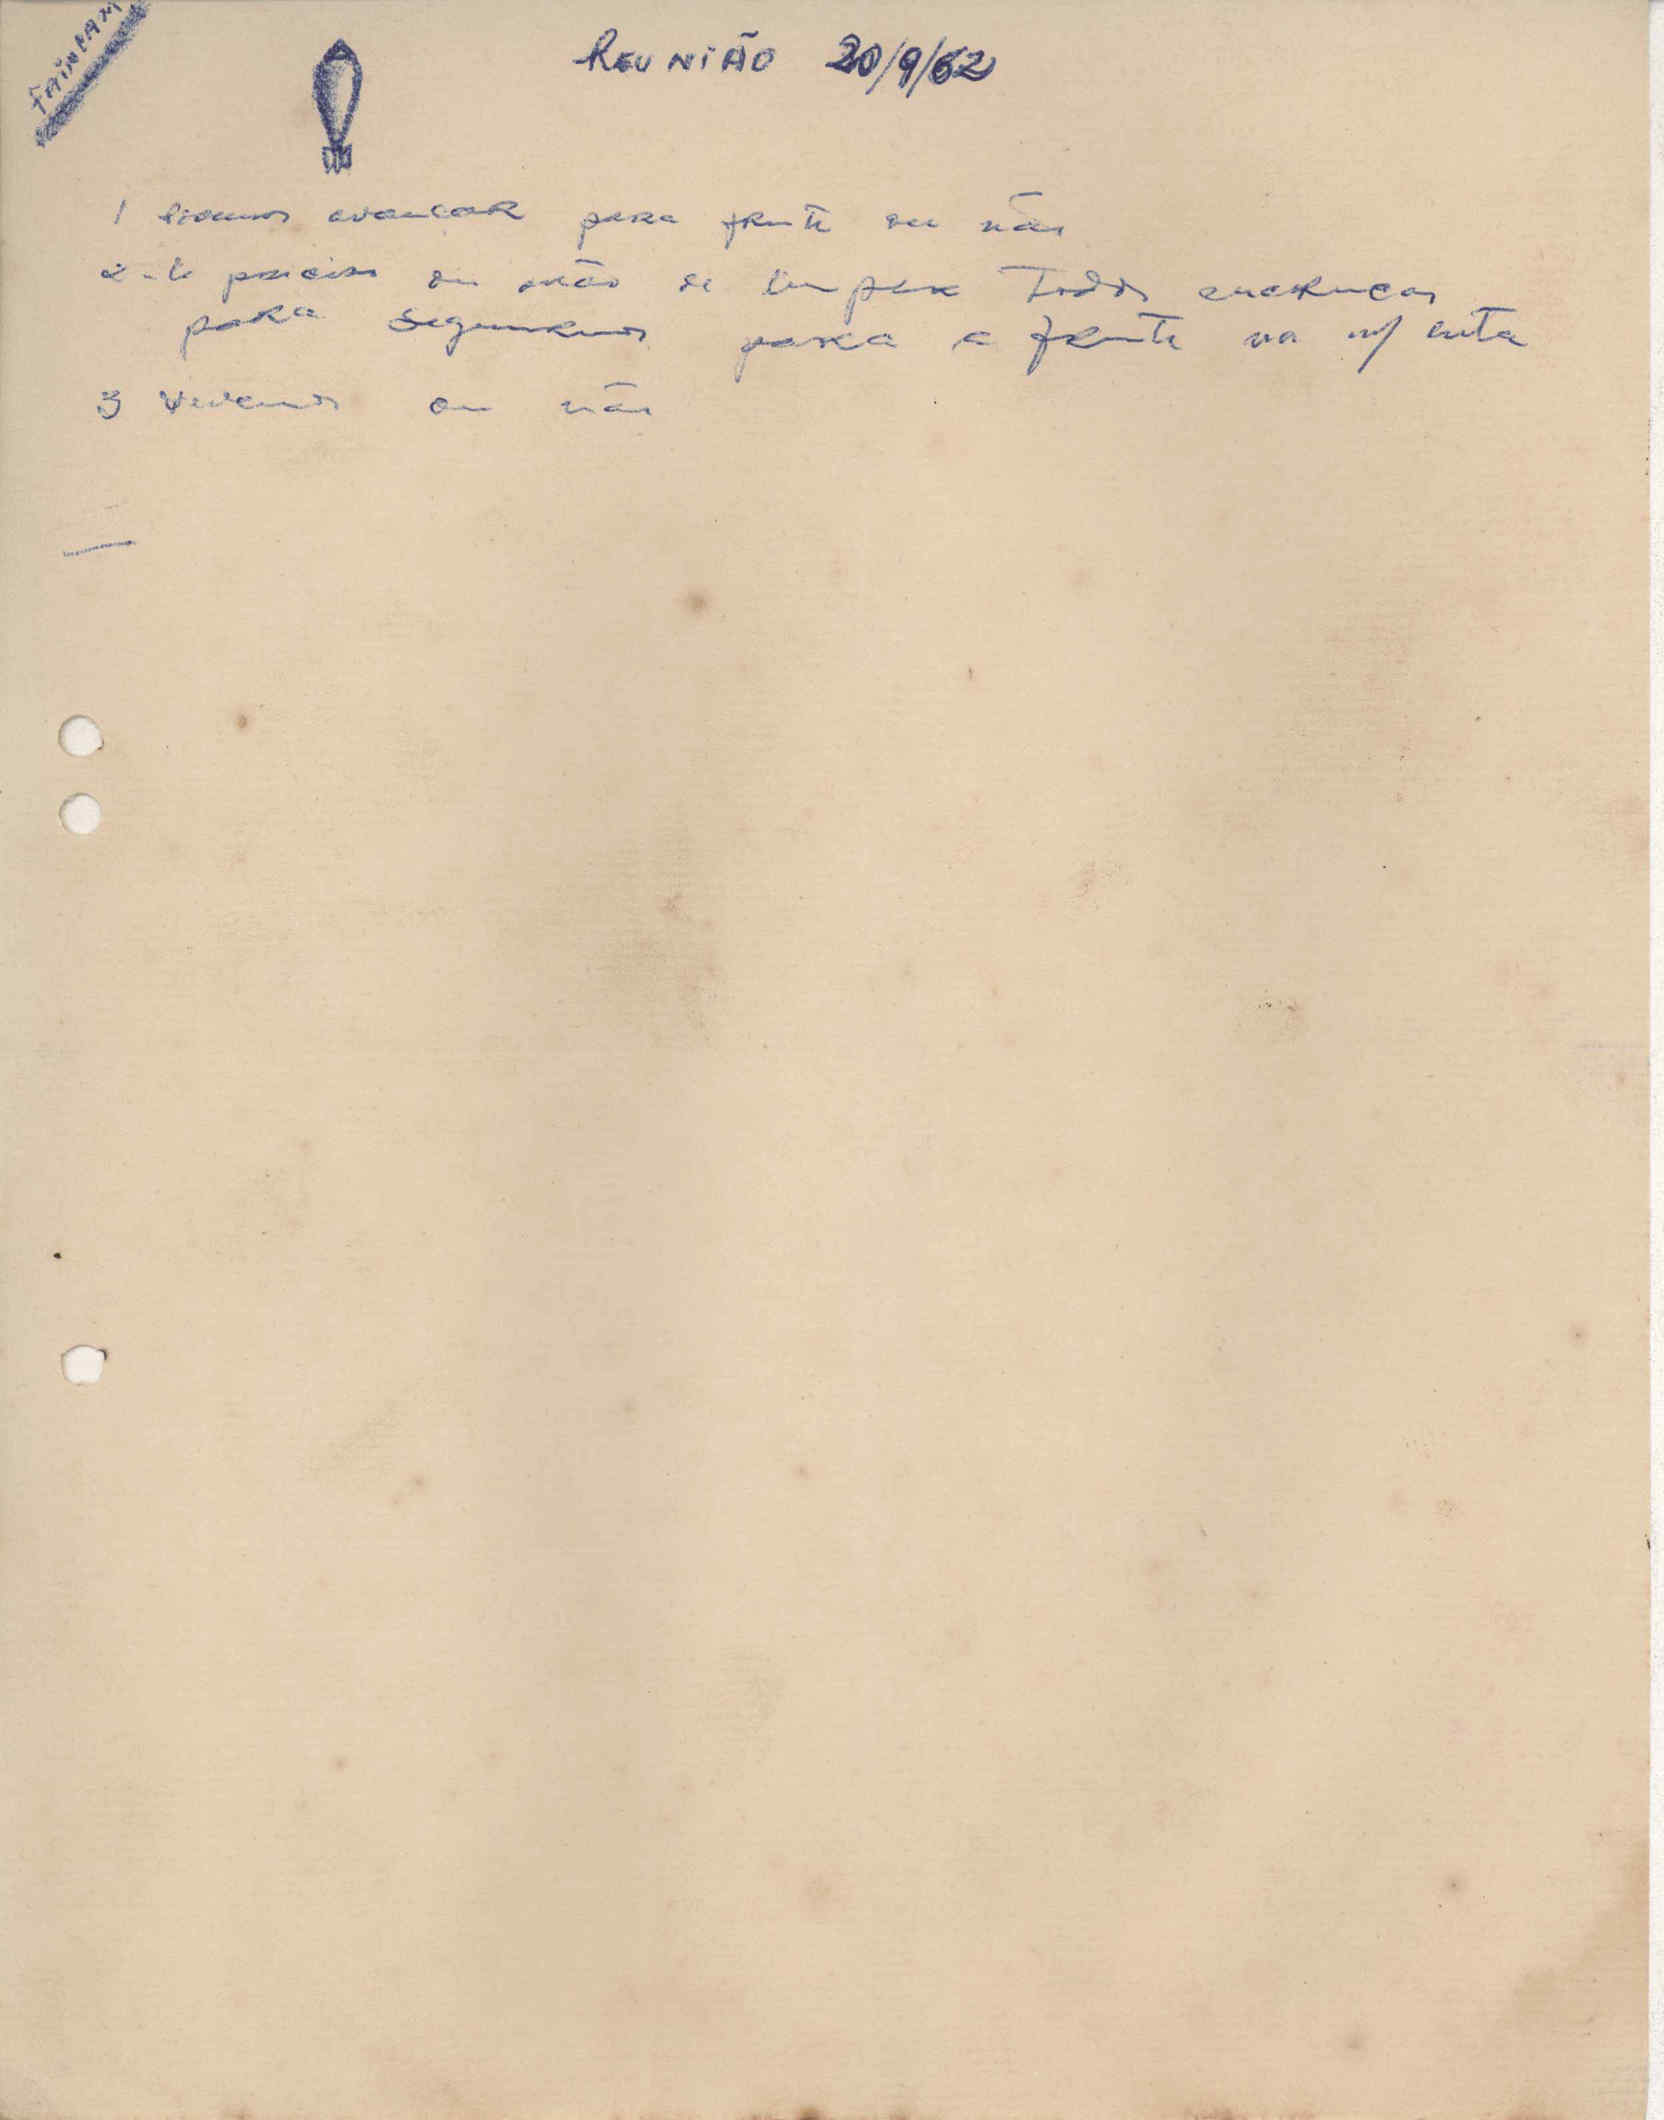 FAINCAM
REUNIÃO 20/9/62
1 Vamos avançar para frente ou não
2 - É preciso ou não de limpar Todos
para seguirmos para a frente na n/ luta
3 Vivemos ou não